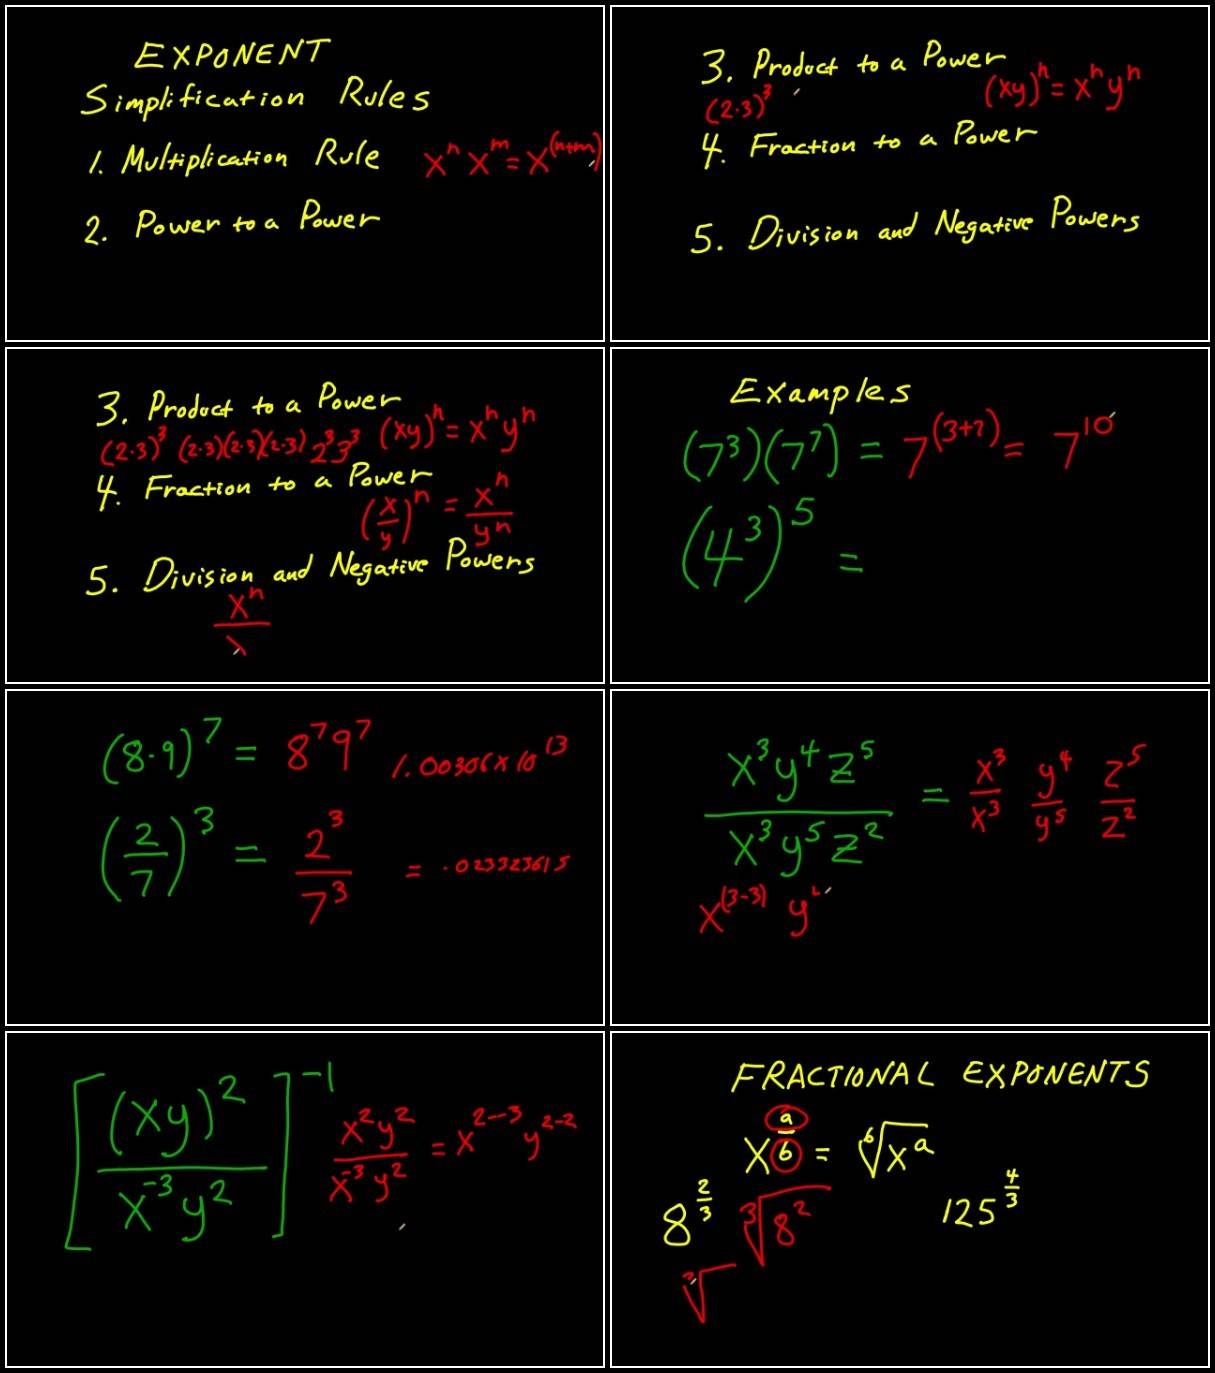 EXPONENT
Simplification Rules
1. Multiplication Rule xⁿ xᵐ = x⁽ⁿ⁺ᵐ⁾
2. Power to a Power
3. Product to a Power
(2·3)³ (xy)ⁿ = xⁿyⁿ
4. Fraction to a Power
5. Division and Negative Powers
3. Product to a Power
(2·3)³ (2·3)(2·3)(2·3) 2³3³ (xy)ⁿ = xⁿyⁿ
4. Fraction to a Power
(x/y)ⁿ = xⁿ/yⁿ
5. Division and Negative Powers
xⁿ
Examples
(7³)(7⁷) = 7⁽³⁺⁷⁾ = 7¹⁰
(4³)⁵ =
(8·9)⁷ = 8⁷9⁷ 1.00306x10¹³
(2/7)³ = 2³/7³ = .023323615
x³y⁴z⁵/x³y⁵z² = x³/x³ y⁴/y⁵ z⁵/z²
x⁽³⁻³⁾ y
[(xy)²/x⁻³y²]⁻¹ x²y²/x⁻³y² = x²⁻⁻³ y²⁻²
FRACTIONAL EXPONENTS
x^(a/b) = ᵇ√xᵃ
8^(2/3) ³√8² 125^(4/3)
³√